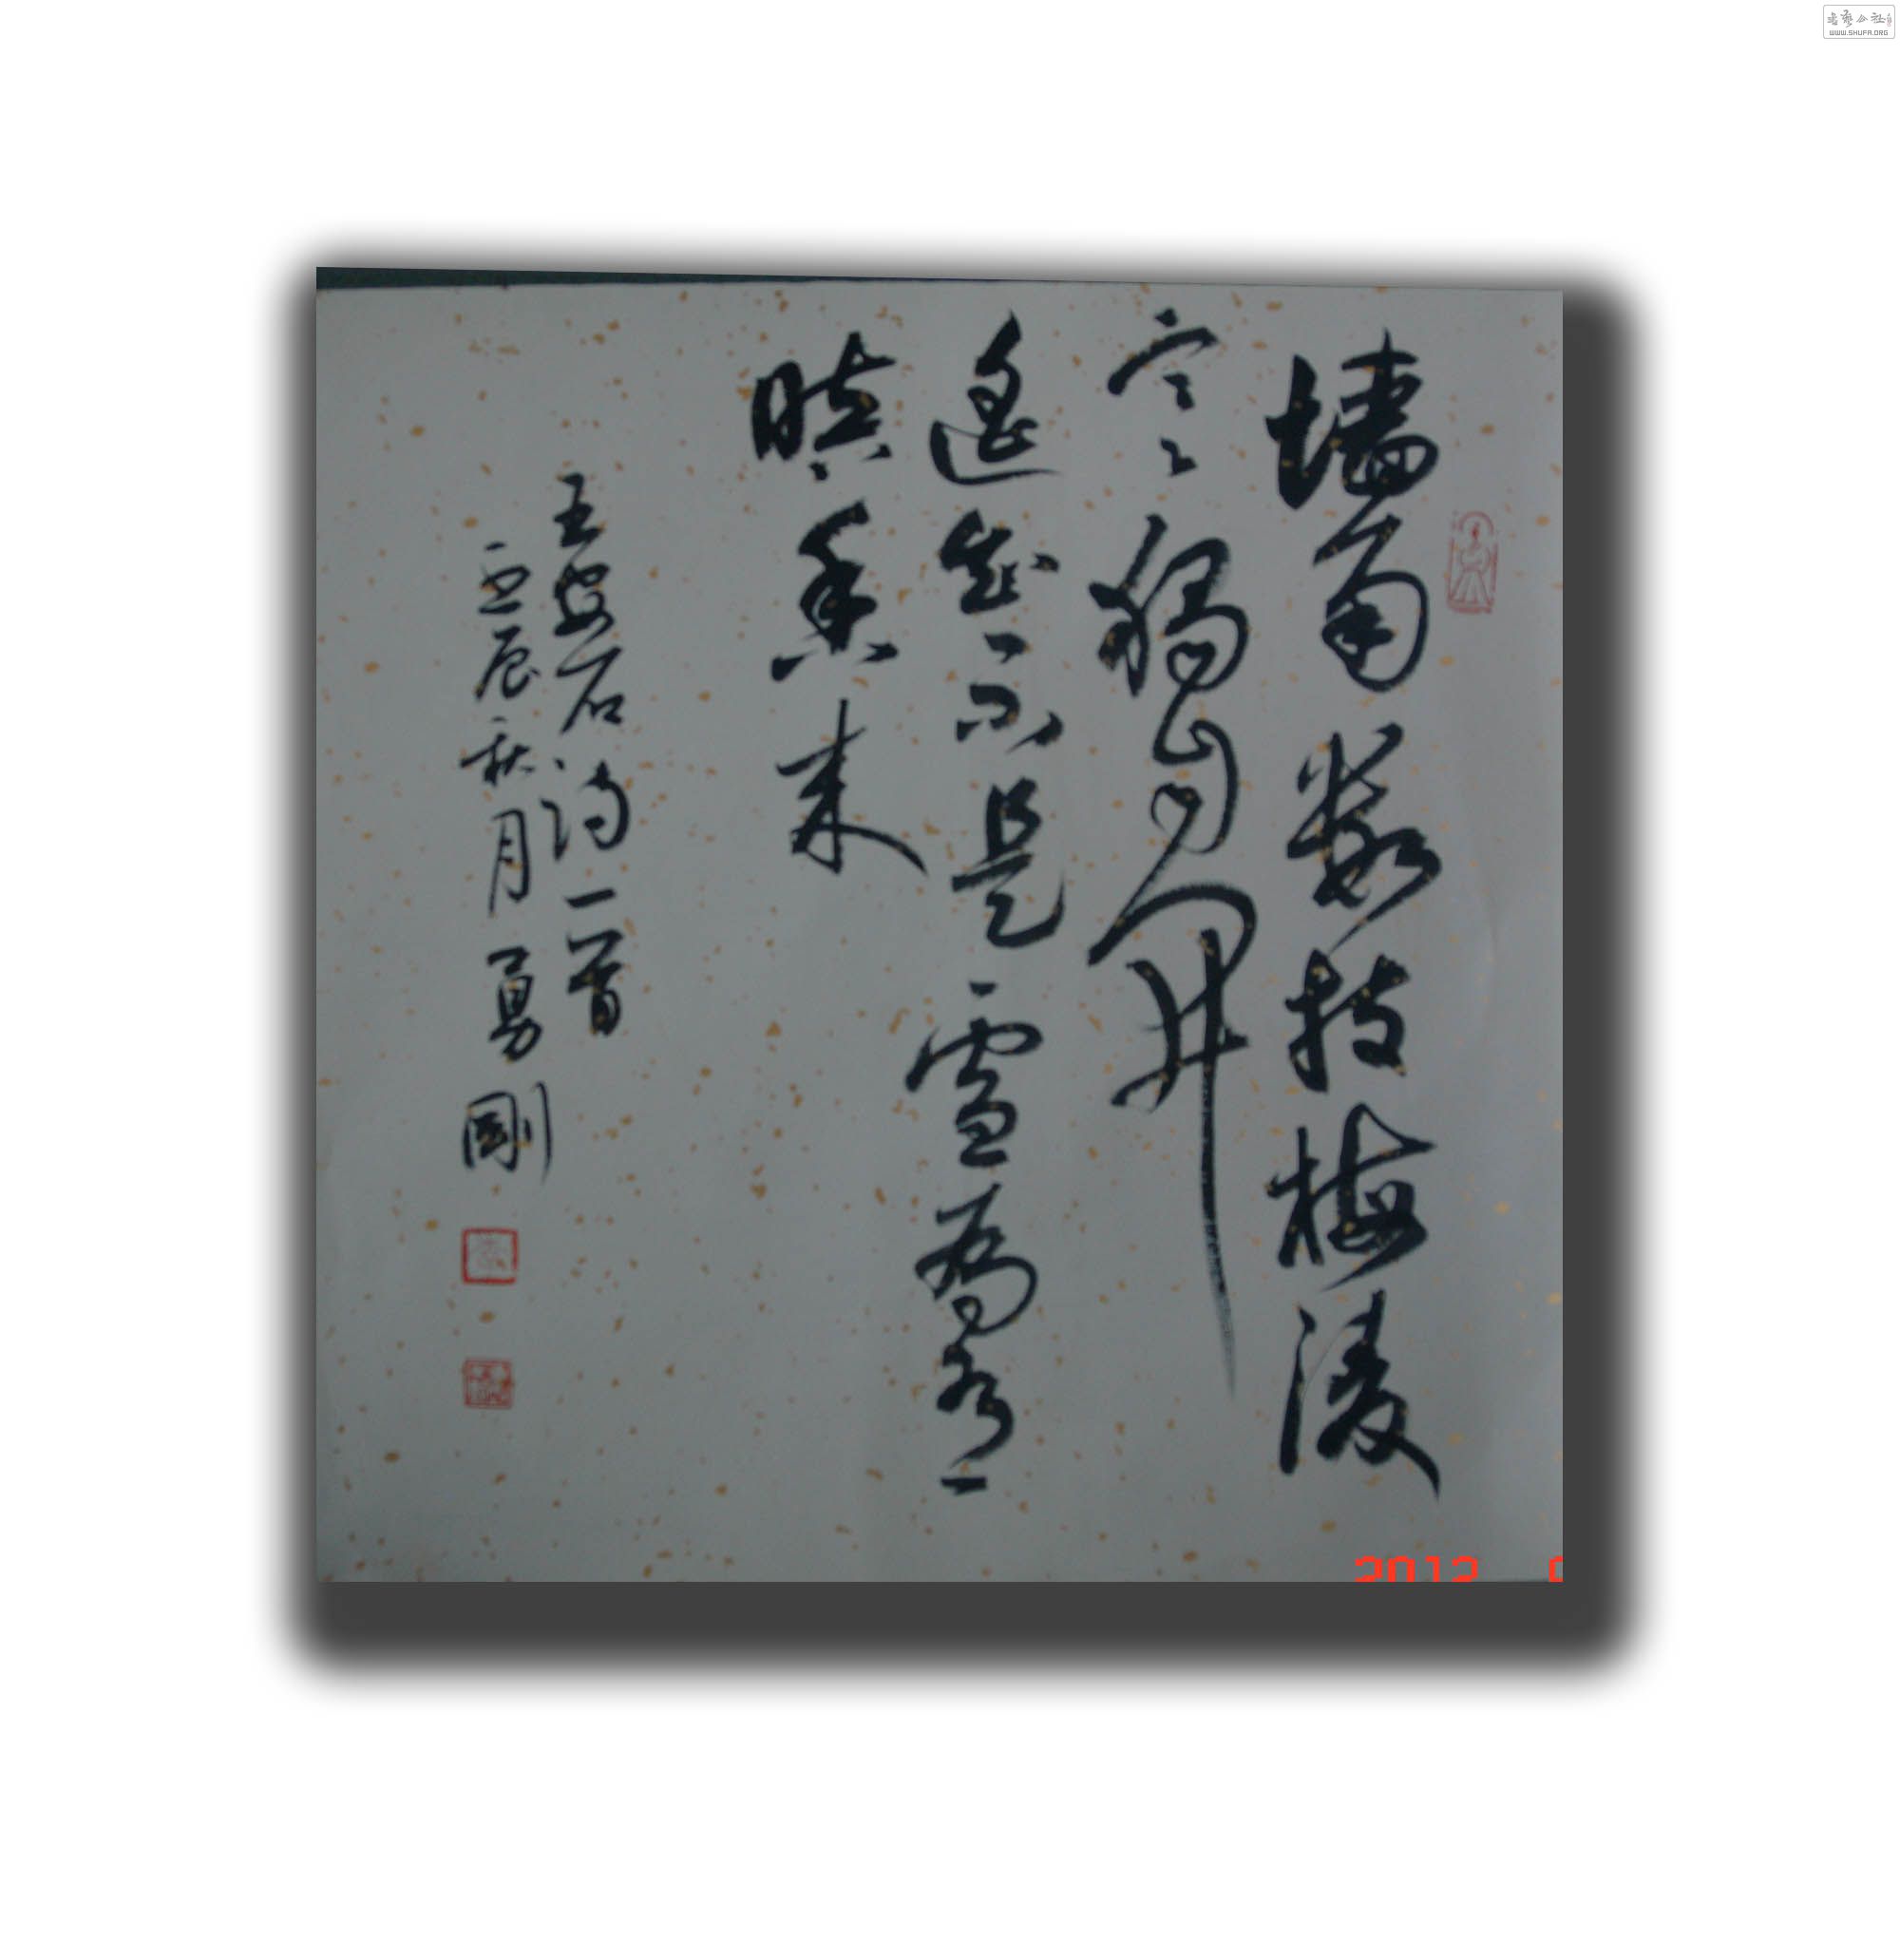 墙角數枝梅凌
寒獨自開
遥知不是雪為有
暗香来
王安石诗一首
壬辰秋月 勇剛
2012
WWW.SHUFA.ORG